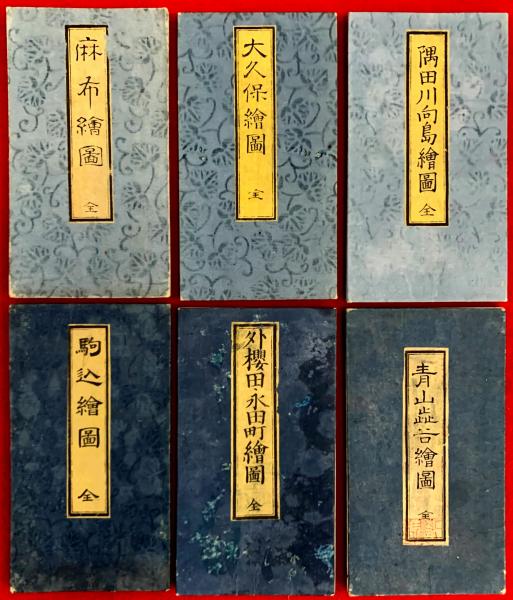 麻布繪圖 全
大久保繪圖 全
隅田川向島繪圖 全
駒込繪圖 全
外櫻田・永田町繪圖 全
青山澁谷繪圖 全